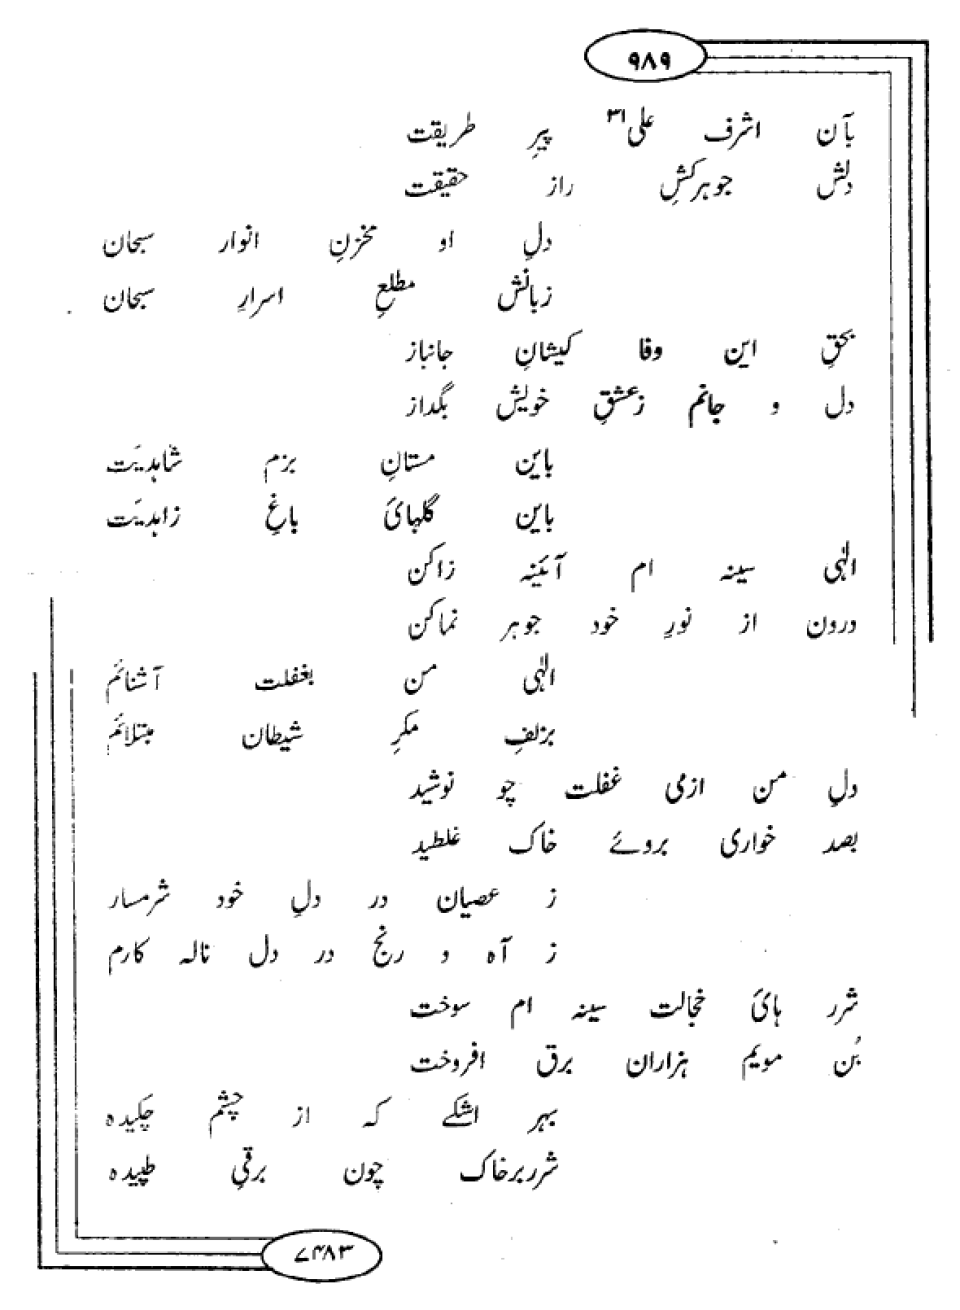 ۹۸۹
بآن اشرف علی۳۱ پیرِ طریقت
دلش جوہرکشِ راز حقیقت
دلِ او مخزنِ انوار سبحان
زبانش مطلعِ اسرارِ سبحان
بحقِ این وفا کیشانِ جانباز
دل و جانم زعشقِ خویش بگداز
باین مستانِ بزم شاہدیَت
باین گلہائ باغِ زاہدیَت
الٰہی سینہ ام آئینہ زاکن
درون از نورِ خود جوہر نماکن
الٰہی من بغفلت آشنائم
بزلفِ مکرِ شیطان مبتلائم
دلِ من ازمی غفلت چو نوشید
بصد خواری بروئے خاک غلطید
ز عصیان در دلِ خود شرمسار
ز آہ و رنج در دل نالہ کارم
شرر ہائ خجالت سینہ ام سوخت
بُن مویم ہزاران برق افروخت
بہر اشکے کہ از چشم چکیدہ
شرربرخاک چون برقِ طپیدہ